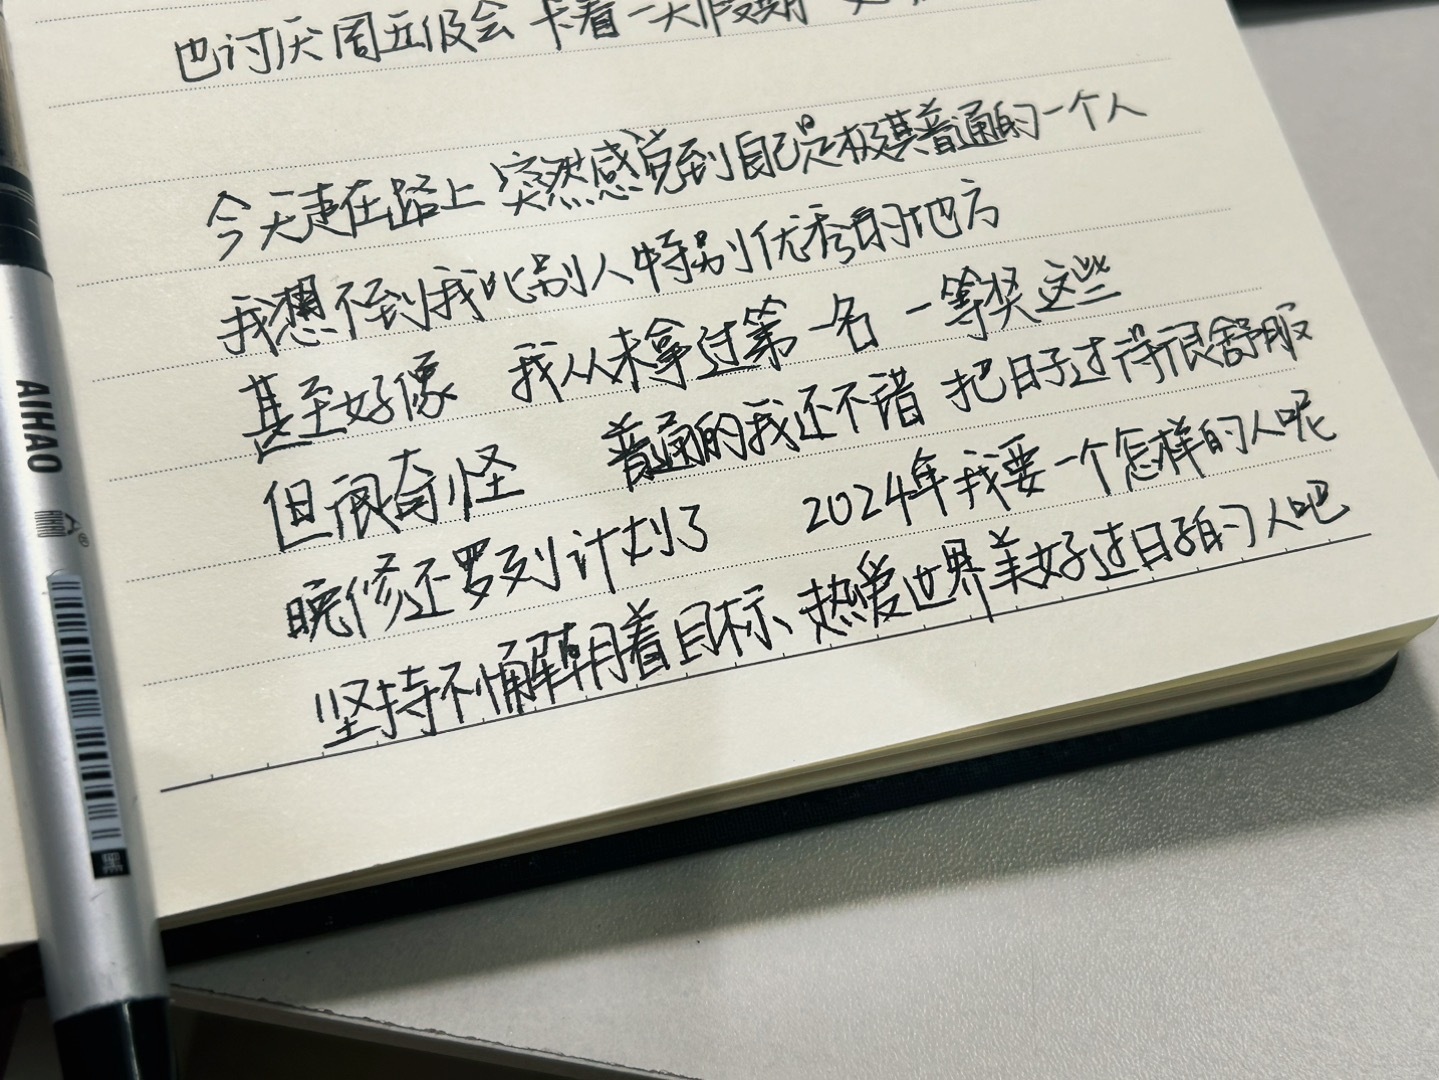 也讨厌周五级会 卡着一天假期
今天走在路上 突然感觉到自己是极其普通的一个人
我想不到我比别人特别优秀的地方
甚至好像 我从未拿过第一名 一等奖这些
但很奇怪 普通的我还不错 把日子过得很舒服
晚修还罗列计划了 2024年我要一个怎样的人呢
坚持不懈朝着目标、热爱世界美好过日子的人吧
AIHAO
黑